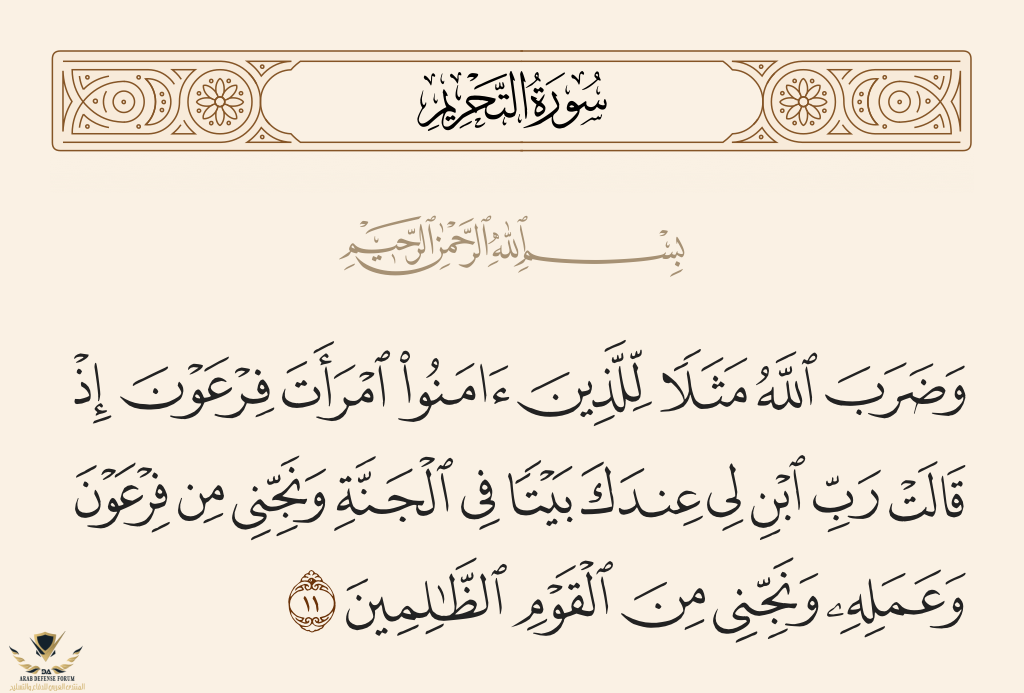 سُورَةُ التَّحْرِيمِ
بِسْمِ ٱللَّهِ ٱلرَّحْمَٰنِ ٱلرَّحِيمِ
وَضَرَبَ ٱللَّهُ مَثَلًا لِّلَّذِينَ ءَامَنُوا۟ ٱمْرَأَتَ فِرْعَوْنَ إِذْ
قَالَتْ رَبِّ ٱبْنِ لِى عِندَكَ بَيْتًا فِى ٱلْجَنَّةِ وَنَجِّنِى مِن فِرْعَوْنَ
وَعَمَلِهِۦ وَنَجِّنِى مِنَ ٱلْقَوْمِ ٱلظَّٰلِمِينَ ١١
DA
ARAB DEFENSE FORUM
المنتدى العربي للدفاع والتسليح